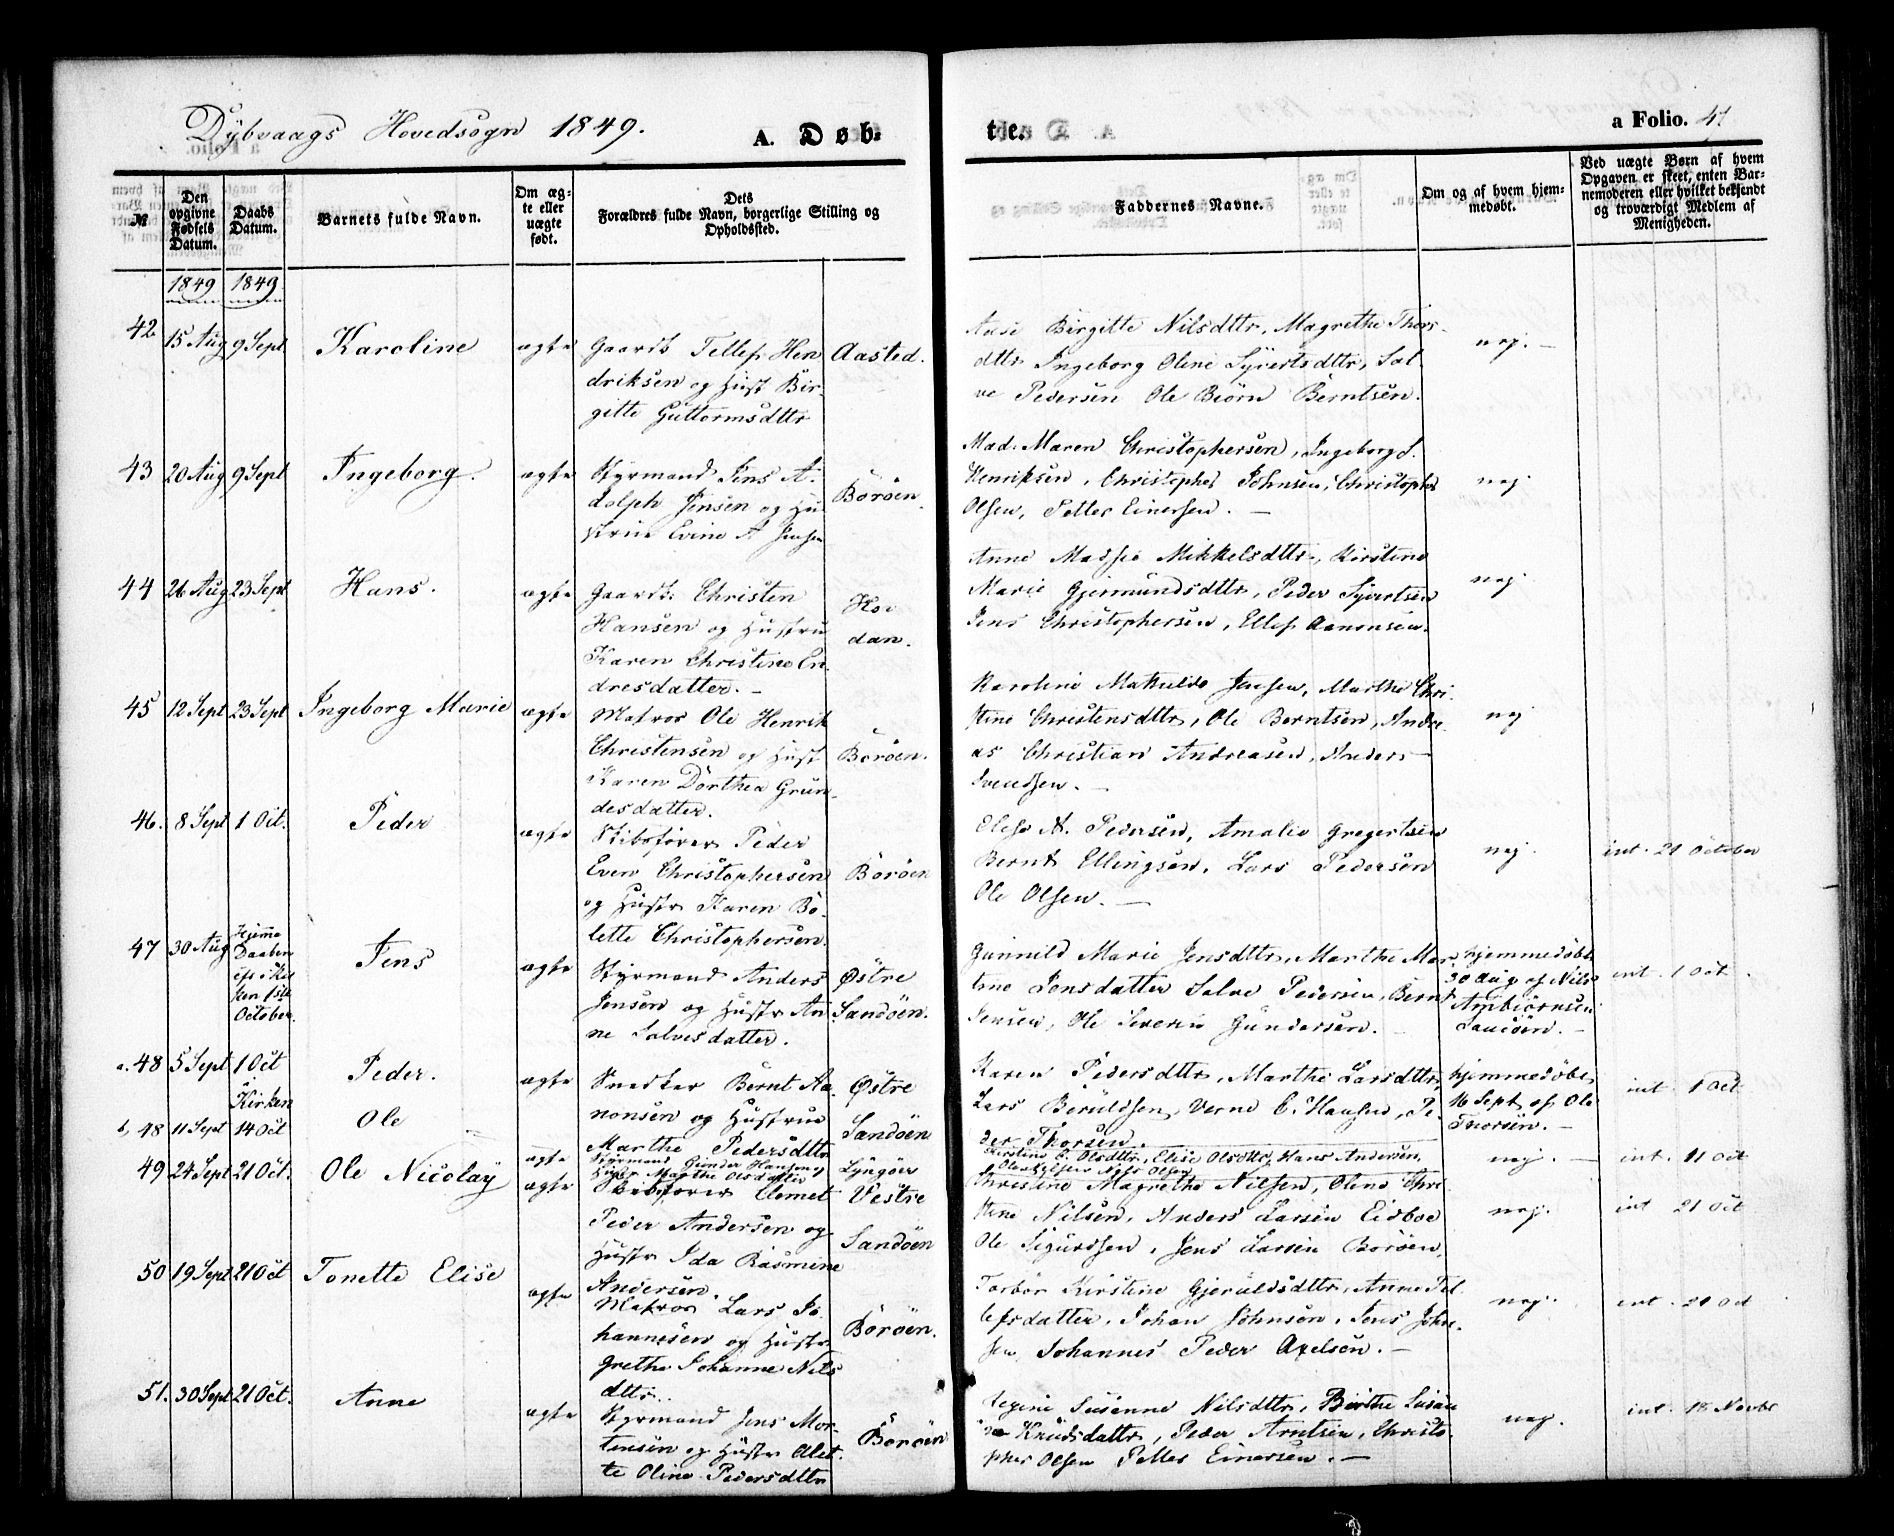 Dybvaags Hovedsogn 1849. A. Døb-
te. a Folio. 41
№
Den opgivne Fødsels Datum.
Daabs Datum.
Barnets fulde Navn.
Om ægte eller uægte født.
Dets Forældres fulde Navn, borgerlige Stilling og Opholdssted.
Faddernes Navne.
Om og af hvem hjemmedøbt.
Ved uægte Børn af hvem Opgaven er skeet, enten Barnemoderen eller hvilket bekjendt og troværdigt Medlem af Menigheden.
1849 1849
42 15 Aug 9 Sept Karoline ægte
Gaardb. Tellef Hen
driksen og Hust Bir-
gitte Guttormsdttr
Aasted.
Aase Birgitte Nilsdttr, Magrethe Thors-
dttr Ingeborg Oline Syvertsdttr, Sal-
ve Pedersen Ole Biörn Berntsen.
nej.
43 20 Aug 9 Sept Ingeborg. ægte
Styrmand Jens A-
dolph Jensen og Hu-
strue Evine A Jensen
Böröen.
Mad. Maren Christophersen, Ingeborg S.
Henriksen, Christopher Johnsen, Christopher
Olsen, Petter Einersen.
nej.
44 26 Aug 23 Sept Hans. ægte
Gaardb. Christen
Hansen og Hustru
Karen Christine En-
dresdatter.
dan.
Anne Mikkelsdttr, Kirstine
Marie Gjermundsdttr, Peder Syvertsen
Jens Christophersen, Ellef Aanonsen.
nej.
45 12 Sept 23 Sept Ingeborg Marie ægte
Matros Ole Henrik
Christensen og Hust
Karen Dorthea Grun-
desdatter.
Boröen.
Karoline Mathilde Jensen, Marthe Chri-
stine Christensdttr, Ole Berntsen, Andre-
as Christian Andreasen, Anders
Svendsen.
nej
46. 8 Sept 1 Oct. Peder ægte
Skibsförer Peder
Even Christophersen
og Hustr Karen Bo-
lette Christophersen.
Böröen
Elise N. Pedersen, Amalie Gregertsen
Bernt Ellingsen, Lars Pedersen
Ole Olsen.
nej. int. 21 October
47 30 Aug
Hjemme
Daaben
Kir
ken 1ste
October.
Jens ægte
Styrmand Anders
Jensen og Hustr An-
ne Salvesdatter.
Östre
Sandöen.
Gunnild Marie Jensdttr, Marthe Mar-
tine Jensdatter Salve Pedersen, Bernt
Jensen, Ole Severin Gundersen.
hjemmedöbt
30 Aug af Nils
Ambiörnsen
int. 1 Oct.
a. 48 5 Sept 1 Oct
i Kirken
Peder. ægte
b, 48 11 Sept 14 Oct Ole ægte
Snedker Bernt Aa-
nonsen og Hustrue
Marthe Pedersdttr
Östre
Sandöen
Karen Pedersdttr, Marthe Larsdttr,
Lars Beruldsen, Verne C. Hansen, Pe-
der Thorsen.
hjemmedöbt
16 Sept af Ole
Thorsen.
int. 1 Oct
Styrmand Gunder Hansen
Marthe Olsdatter
Lyngöer
Kirstine E. Olsdttr, Elise Olsdttr, Hans Andersen,
Nils Olsen
nej. int. 11 Oct
49 24 Sept 21 Oct. Ole Nicolay ægte
Skibsförer Clemet
Peder Andersen og
Hustr Ida Rasmine
Andersen.
Vestre
Sandöen
Christine Magrethe Nilsen, Olene Chri-
stine Nilsen, Anders Larsen Eidboe
Ole Sigurdsen, Jens Larsen Boröen,
nej. int 21 Oct
50 19 Sept 21 Oct Tonette Elise ægte
Matros Lars Jo-
hannesen og Hustr
Grethe Johanne Nils
dttr.
Böröen.
Torbör Kirstine Gjeruldsdttr, Anne Tel-
lefsdatter, Johan Johnsen, Jens John-
sen, Johannes Peder Axelsen.
nej. int. 21 Oct
51. 30 Sept 21 Oct. Anne ægte
Styrmand Jens Mor-
tensen og Hustr Alet-
te Oline Pedersdttr
Boröen
Regine Susanne Nilsdttr, Birthe Susan-
ne Knudsdattr, Peder Arntsen, Christo-
pher Olsen Petter Einersen.
nej. int. 18 Novbr